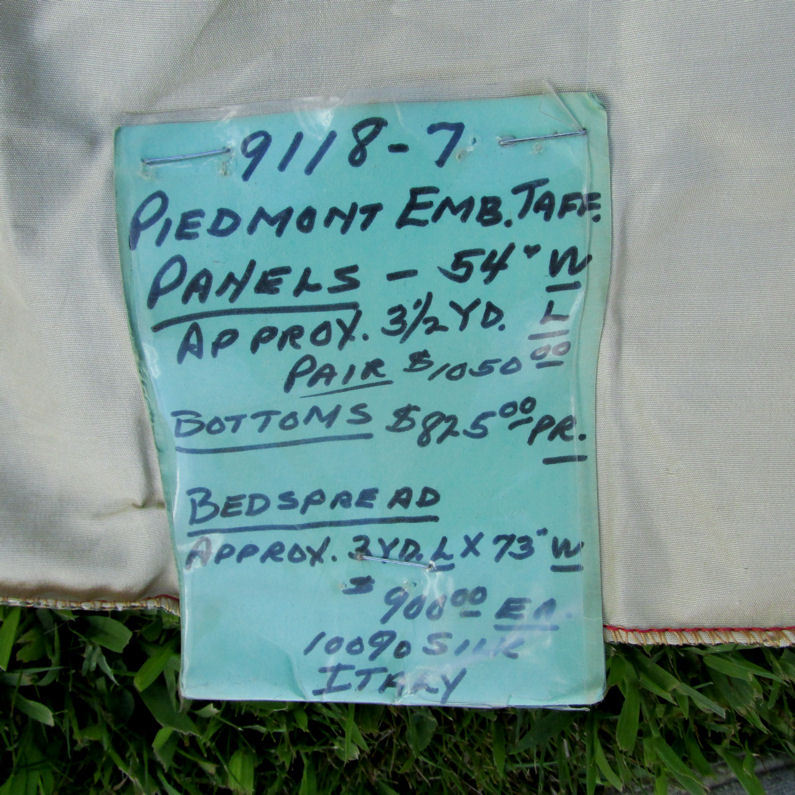 9118-7
PIEDMONT EMB. TAFF.
PANELS - 54" W
APPROX. 3 1/2 YD. L
PAIR $1050.00
BOTTOMS $825.00 PR.
BEDSPREAD
APPROX. 3 YD. L X 73" W
$900.00 EA.
100% SILK
ITALY